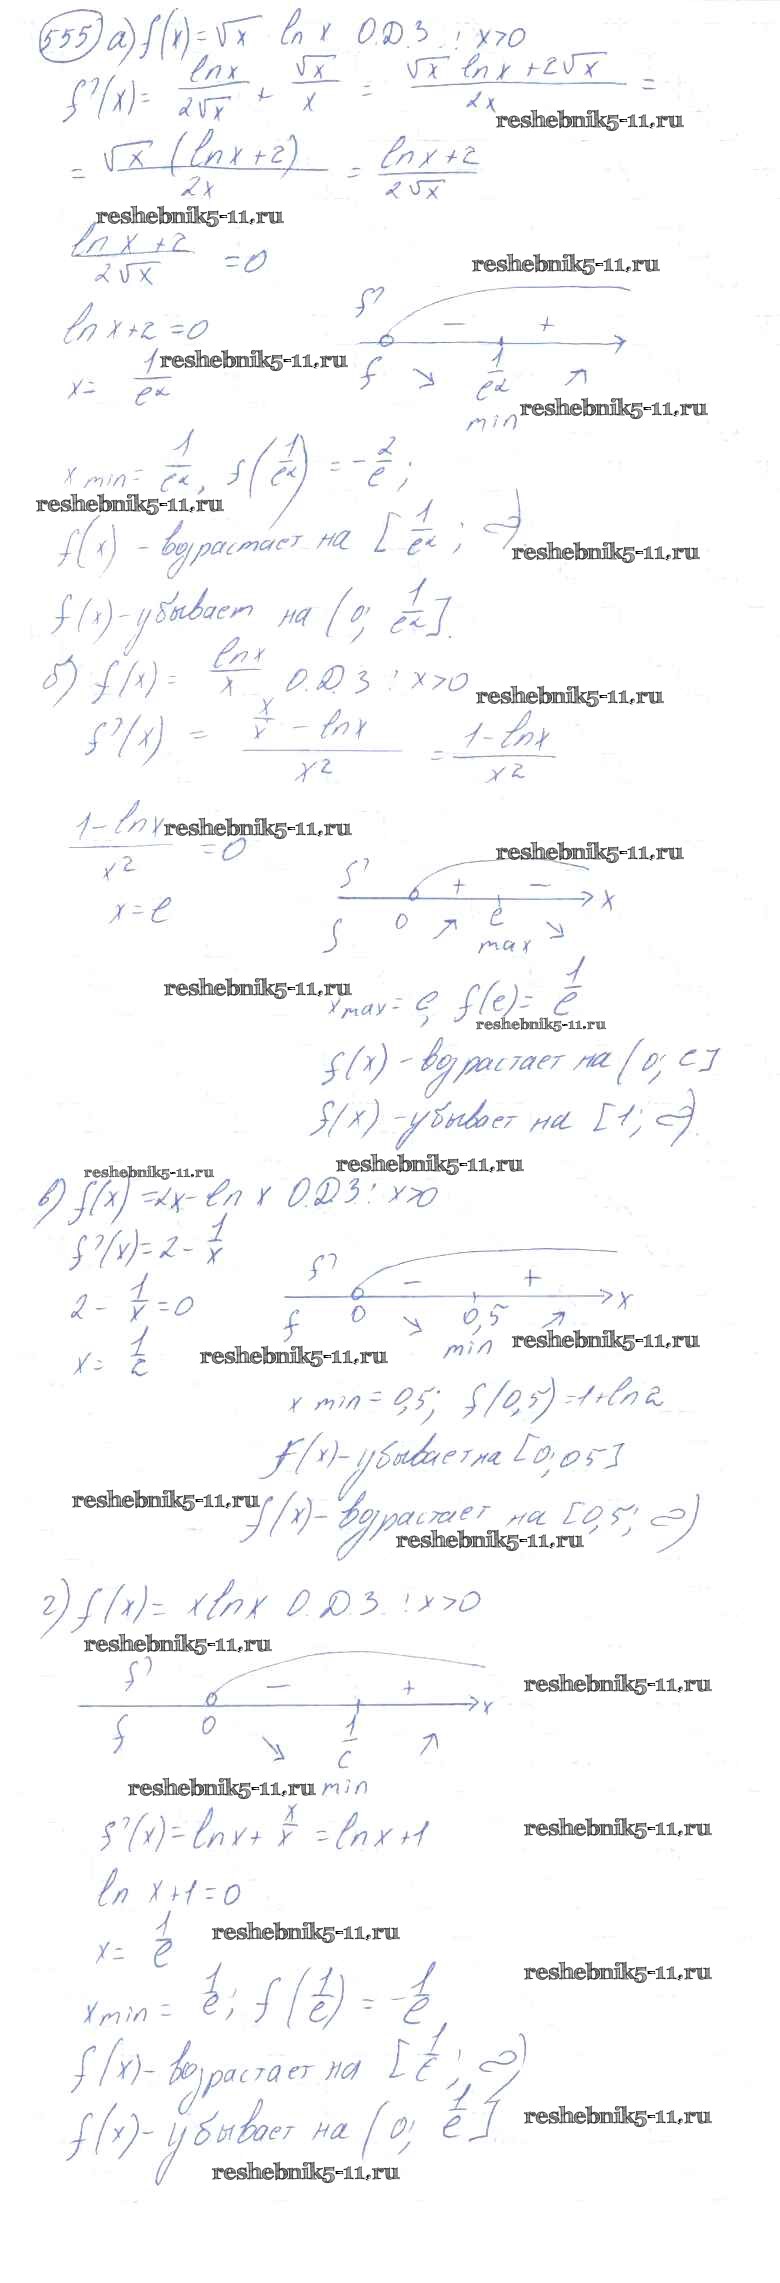 555 а) f(x) = √x ln x О.Д.З.: x>0
f'(x) = lnx/2√x + √x/x = (√x lnx + 2√x)/2x =
reshebnik5-11.ru
= √x (lnx+2)/2x = (lnx+2)/2√x
reshebnik5-11.ru
(ln x+2)/2√x = 0
reshebnik5-11.ru
f' − +
ln x+2 = 0
x = 1/e² reshebnik5-11.ru
f ↘ 1/e² ↗
min reshebnik5-11.ru
x min = 1/e², f(1/e²) = -2/e;
reshebnik5-11.ru
f(x) - возрастает на [1/e²; ∞)
reshebnik5-11.ru
f(x) - убывает на (0; 1/e²].
б) f(x) = lnx/x О.Д.З: x>0
reshebnik5-11.ru
f'(x) = (x/x - lnx)/x² = (1-lnx)/x²
(1-lnx)/x² = 0 reshebnik5-11.ru
reshebnik5-11.ru
f' + − x
x = e
f 0 ↗ e ↘
max
reshebnik5-11.ru
x max = e, f(e) = 1/e
reshebnik5-11.ru
f(x) - возрастает на (0; e]
f(x) - убывает на [1; ∞).
reshebnik5-11.ru
reshebnik5-11.ru
в) f(x) = 2x - ln x О.Д.З: x>0
f'(x) = 2 - 1/x
f' − + x
2 - 1/x = 0
f 0 ↘ 0,5 ↗
min reshebnik5-11.ru
x = 1/2 reshebnik5-11.ru
x min = 0,5; f(0,5) = 1+ln2
f(x) - убывает на [0; 05]
reshebnik5-11.ru
f(x) - возрастает на [0,5; ∞)
reshebnik5-11.ru
г) f(x) = x ln x О.Д.З.: x>0
reshebnik5-11.ru
f' − + x
reshebnik5-11.ru
f 0 ↘ 1/e ↗
reshebnik5-11.ru min
f'(x) = lnx + x/x = lnx+1
reshebnik5-11.ru
ln x+1 = 0
x = 1/e reshebnik5-11.ru
reshebnik5-11.ru
x min = 1/e; f(1/e) = -1/e
f(x) - возрастает на [1/e; ∞)
f(x) - убывает на (0; 1/e]
reshebnik5-11.ru
reshebnik5-11.ru